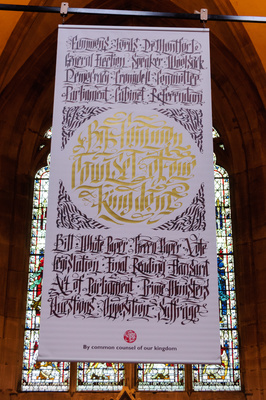 Commons · Lords · De Montfort
General Election · Speaker · Woolsack
Democracy · Cromwell · Committee
Parliament · Cabinet · Referendum
By Common
Counsel of our
Kingdom
Bill · White Paper · Green Paper · Vote
Legislation · Final Reading · Hansard
Act of Parliament · Prime Ministers
Questions · Opposition · Suffrage
By common counsel of our kingdom